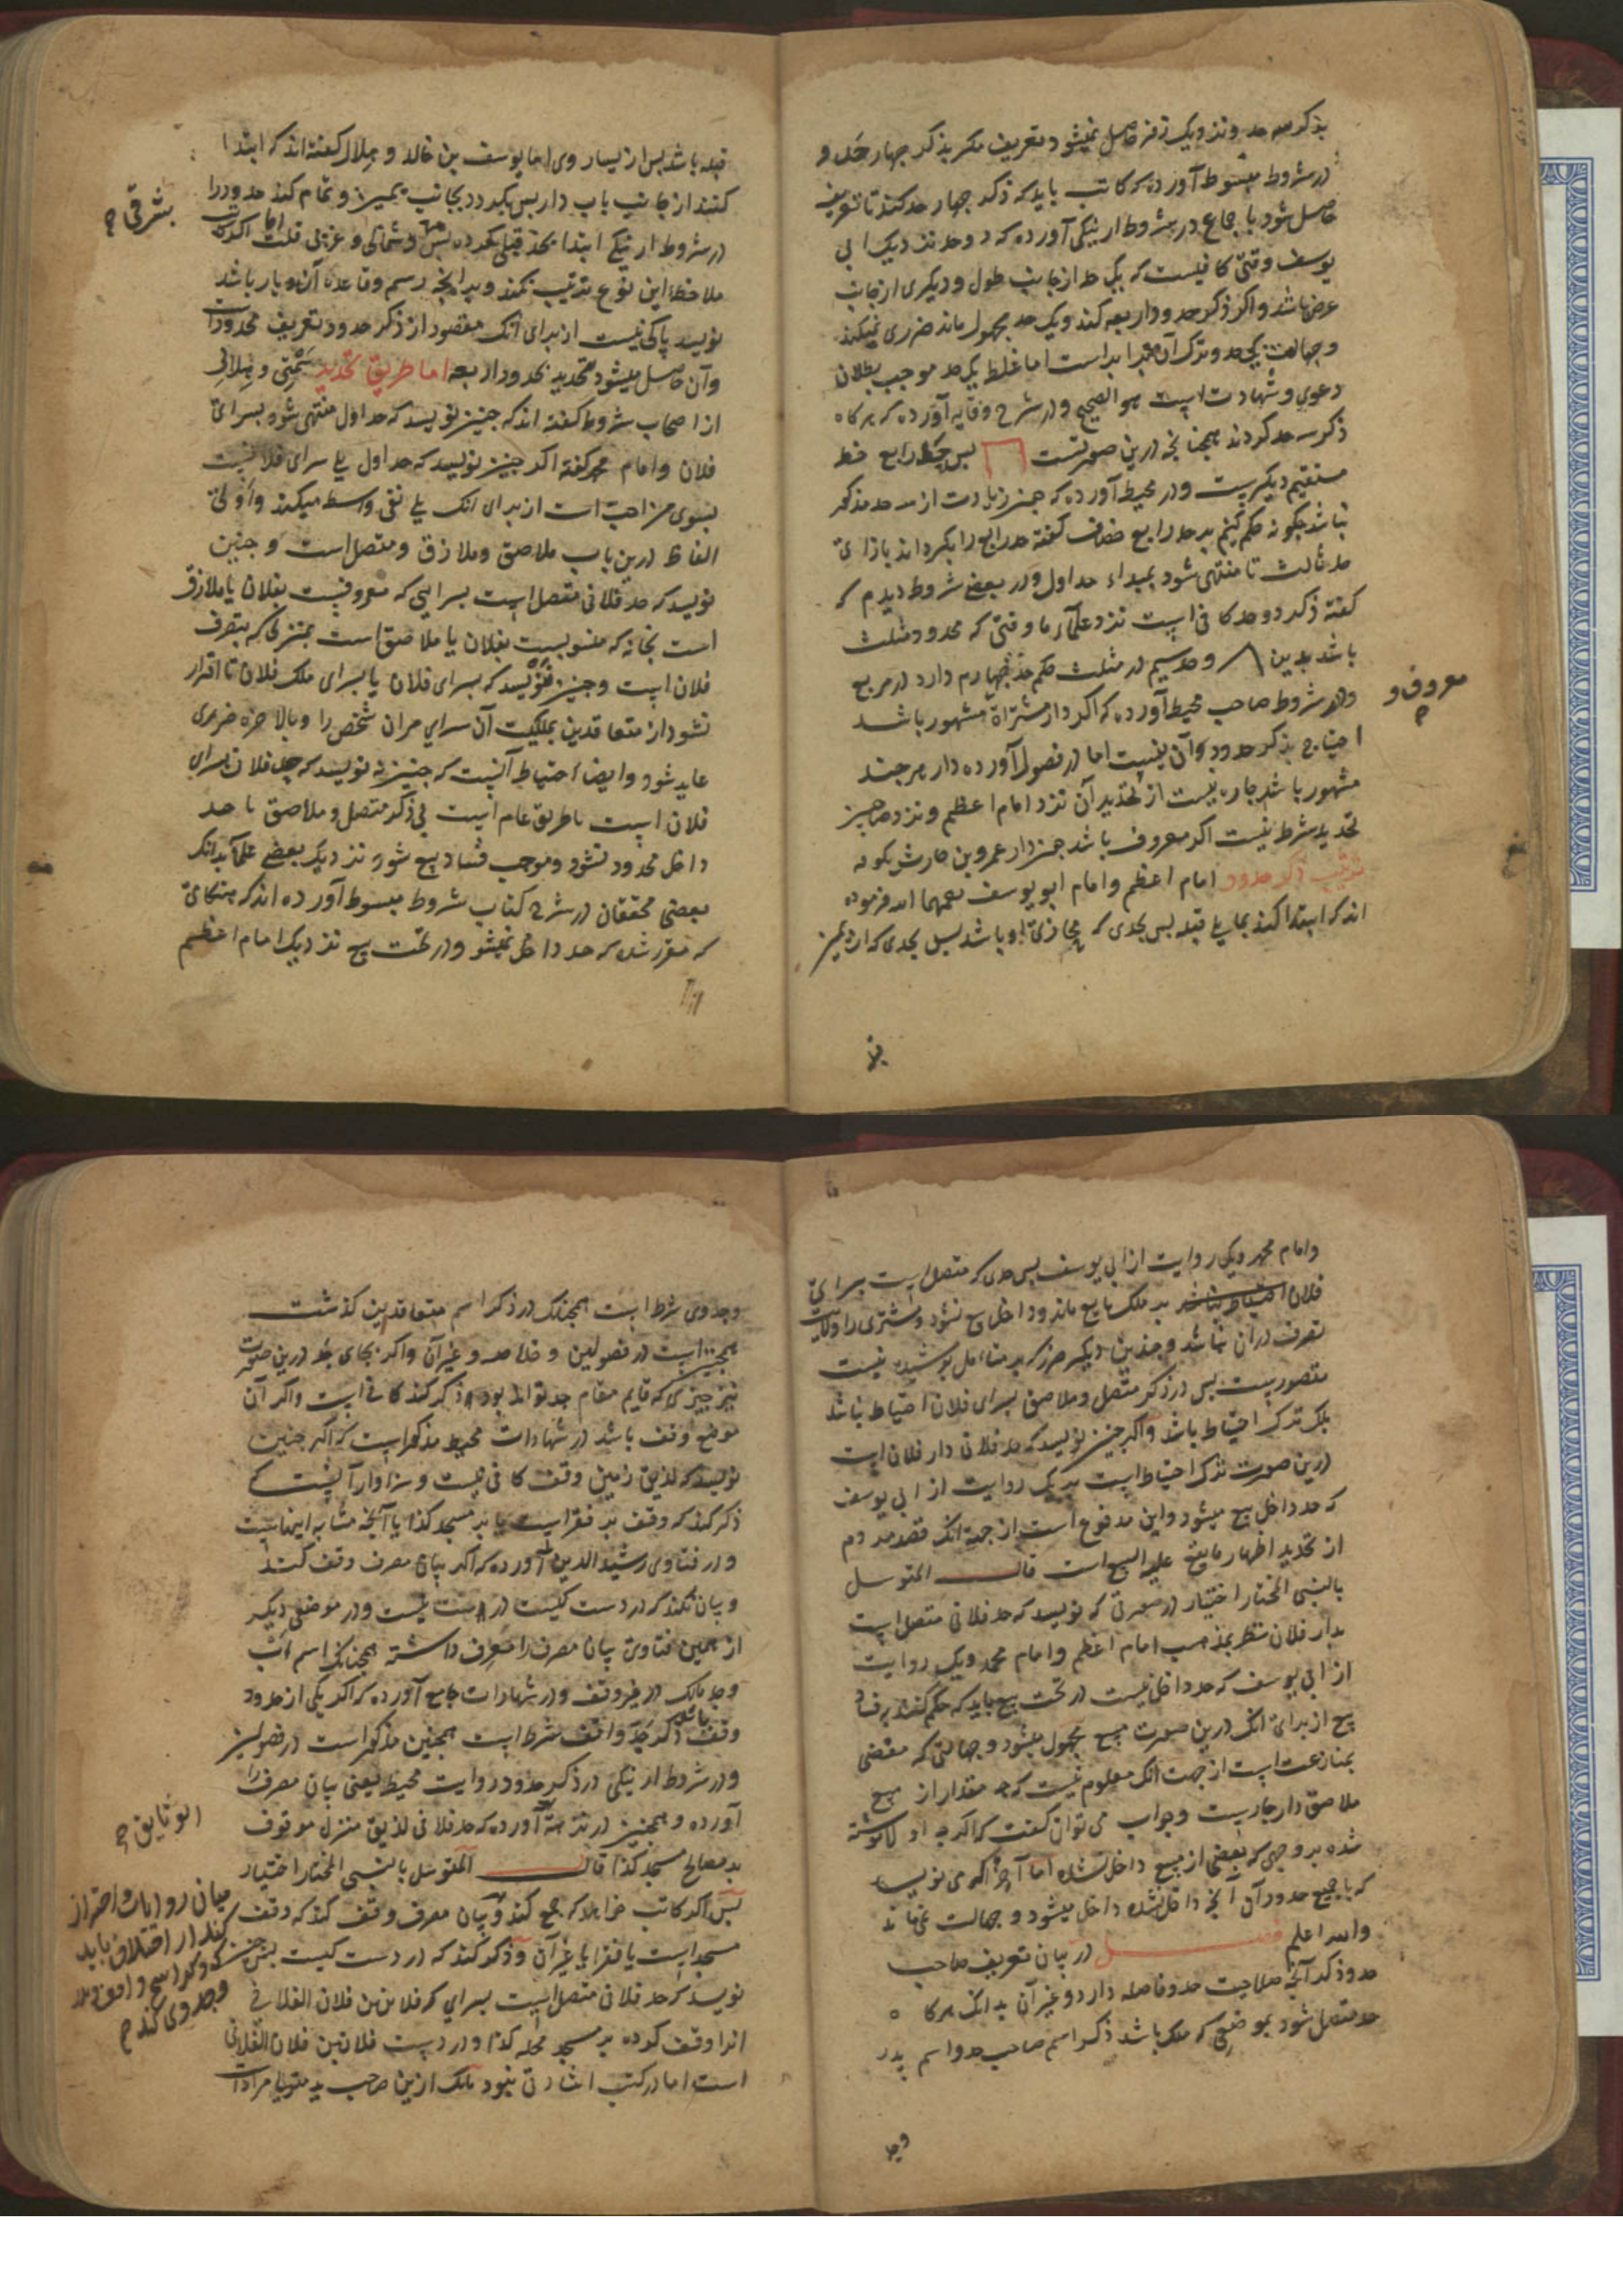 بذکر سه حد و نزدیک زفر حاصل نمیشود تعریف مکر بذکر جهار حد و
در شروط مبسوط آورده که کاتب باید که ذکر جهار حد کند تا تعریف
حاصل شود باجماع در شروط ارنیکی آورده که دو حد نزدیک ابی
یوسف وقتی کافیست که یک حد از جانب طول و دیکری از جانب
عرض باشد و اکر ذکر حدود اربعه کند و یک حد مجهول ماند ضرری نمیکند
و جهالت یکحد و ترک آن برابر است اما غلط یکحد موجب بطلان
دعوی و شهادت است هو الصحیح و در شرح وقایه آورده که هرکاه
ذکر سه حد کردند همجنانجه درین صورتست بس حد رابع خط
مستقیم دیکریست و در محیط آورده که جنز زیادت از سه حد مذکور
نباشد جکونه حکم کنیم بر حد رابع خصاف کفته حد رابع را بکرداند بازای
حد ثالث تا منتهی شود بمبداء حد اول و در بعضی شروط دیدم که
کفته ذکر دو حد کافی است نزد علمآء ما وقتی که محدود مثلث
باشد بدین و حد سیم در مثلث حکم حد جهارم دارد در مربع
و در شروط صاحب محیط آورده که اکر دار مشتراة مشهور باشد
معروف و
احتیاج بذکر حدود آن نیست اما در فصول آورده دار هرجند
مشهور باشد جاره نیست از تحدید آن نزد امام اعظم و نزد صاحبین
تحدید شرط نیست اکر معروف باشد جنز دار عمرو بن حارث بکوفه
ترتیب ذکر حدود امام اعظم و امام ابو یوسف رحمهما الله فرموده
اند که ابتدا کند بما یلی قبله بس بحدی که محاذی او باشد بس بحدی که از یمین
قبله باشد بس از یسار وی اما یوسف بن خالد و هلال کفته اند که ابتدا
کنند از جانب باب دار بس بکردد بجانب یمین و تمام کند حدود را
در شروط ارنیکی ابتدا بحد قبلی کرده بس و شمالی و غربی قلت اما اکر کاتب
شرقی
ملاحظه این نوع ترتیب نکند و برانجه رسم و قاعده آن دیار باشد
نویسد باکی نیست از برای آنک مقصود از ذکر حدود تعریف محدودات
و آن حاصل میشود بتحدید بحدود اربعه اما طریق تحدید سمتی و هلالی
از اصحاب شروط کفته اند که جنین نویسد که حد اول منتهی شود بسرای
فلان و امام محمد کفته اکر جنین نویسد که حد اول یلی سرای فلانیست
بسوی من احب است از برای انک یلی نفی واسطه میکند و اولی
الفاظ درین باب ملاصق و ملازق و متصل است و جنین
نویسد که حد فلانی متصل است بسرایی که معروفیست بفلان یا ملازق
است بخانه که منسوبست بفلان یا ملاصق است بمنزلی که بتصرف
فلان است و جنین ننویسد که بسرای فلان یا بسرای ملک فلان تا اقرار
نشود از متعاقدین بملکیت آن سرای مران شخص را و بالاخره ضرری
عاید شود و ایضا احتیاط آنست که جنین نه نویسد که حد فلان سرای
فلان است یا طریق عام است فی ذکر متصل و ملاصق تا حد
داخل محدود نشود و موجب فساد بیع شود نزدیک بعضی علمآ بدانک
بعضی محققان در شرح کتاب شروط مبسوط آورده اند که هنکامی
که مقرر شد که حد داخل نمیشود در تحت بیع نزدیک امام اعظم
و امام محمد و یک روایت از ابی یوسف بس حدی که متصل است بسرای
فلان بر ملک بایع ماند و داخل بیع نشود و مشتری را ولایت
تصرف دران نباشد و جندین دیکر ضرر که بر متأمل بوشیده نیست
متصورست بس در ذکر متصل و ملاصق بسرای فلان احتیاط نباشد
بلک ترک احتیاط باشد و اکر جنین نویسد که حد فلانی دار فلان است
درین صورت ترک احتیاط است بر یک روایت از ابی یوسف
که حد داخل بیع میشود و این مدفوع است از جهة انک قصد مردم
از تحدید اظهار ما یقع علیه البیع است قال المتوسل
بالنبی المختار اختیار در صورتی که نویسد که حد فلانی متصل است
بدار فلان نظر بمذهب امام اعظم و امام محمد و یک روایت
از ابی یوسف که حد داخل نیست در تحت بیع باید که حکم کنند بفساد
بیع از برای انک درین صورت مبیع مجهول میشود و جهالتی که مفضی
بمنازعت است از جهت انک معلوم نیست که جه مقدار از مبیع
ملاصق دار جارست و جواب می توان کفت که اکر جه
شده بر وجهی که بعضی از مبیع داخل نشده اما آخر اکه می نویسد
که با جمیع حدود آن انجه داخل نشده داخل میشود و جهالت نمی ماند
والله اعلم فصل در بیان تعریف صاحب
حد و ذکر آنجه صلاحیت حد و فاصله دارد و غیر آن بدانک هرکاه
حد متصل شود بموضعی که ملک باشد ذکر اسم صاحب حد و اسم بدر
وجد
و جد وی شرط است همجنانک در ذکر اسم متعاقدین کذشت
همجنین است در فصولین و خلاصه و غیر آن و اکر بجای جد درین صورت
نیز جیزی که قایم مقام جد تواند بود ذکر کند کافی است و اکر آن
موضع وقف باشد در شهادات محیط مذکور است که اکر جنین
نویسد که لذیق زمین وقف کافی نیست و سزاوار آنست که
ذکر کند که وقف بر فقراست یا بر مسجد کذا یا آنجه مشابه اینهاست
و در فتاوی رشید الدین آورده که اکر بیان مصرف وقف کند
و بیان نکند که در دست کیست درست نیست و در موضعی دیکر
از همین فتاوی بیان مصرف را معرف داشته همجنانک اسم اب
و جد مالک در غیر وقف و در شهادات جامع آورده که اکر یکی از حدود
وقف باشد ذکر جد واقف شرط است همجنین مذکور است در فصولین
و در شروط ارنیکی در ذکر حدود روایت محیط یعنی بیان مصرف را
آورده و همجنین در تتمه آورده که حد فلانی لذیق منزل موقوف
بر مصالح مسجد کذا قال المتوسل بالنبی المختار اختیار
بس اکر کاتب خواهد که جمع کند و بیان مصرف وقف کند که وقف
میان روایات و احتراز
کند از اختلاف باید
مسجد است یا فقرا یا غیر آن و ذکر کند که در دست کیست بس جنین
که ذکر اسم واقف و بدر
و جد وی کند
نویسد که حد فلانی متصل است بسرای که فلان بن فلان الفلانی
انرا وقف کرده بر مسجد محله کذا و در دست فلان بن فلان الفلانی
است اما در کتب اشارتی نبود بانک ازین صاحب ید متولی مراد است